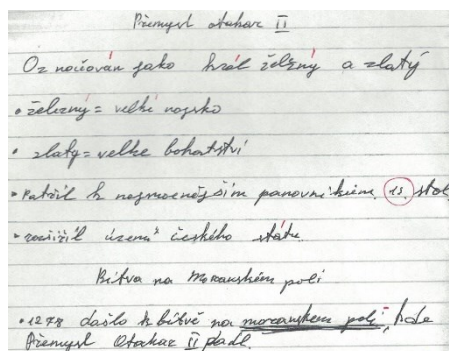 Přemysl otakar II
Označován jako král železný a zlatý
• železný = velké vojsko
• zlatý = velke bohatství
• Patřil k nejmocnějším panovníkům 13. stol
• rozšířil území českého státu
Bitva na Moravském poli
• 1278 došlo k bitvě na moravskem poli, kde
Přemysl Otakar II padl.